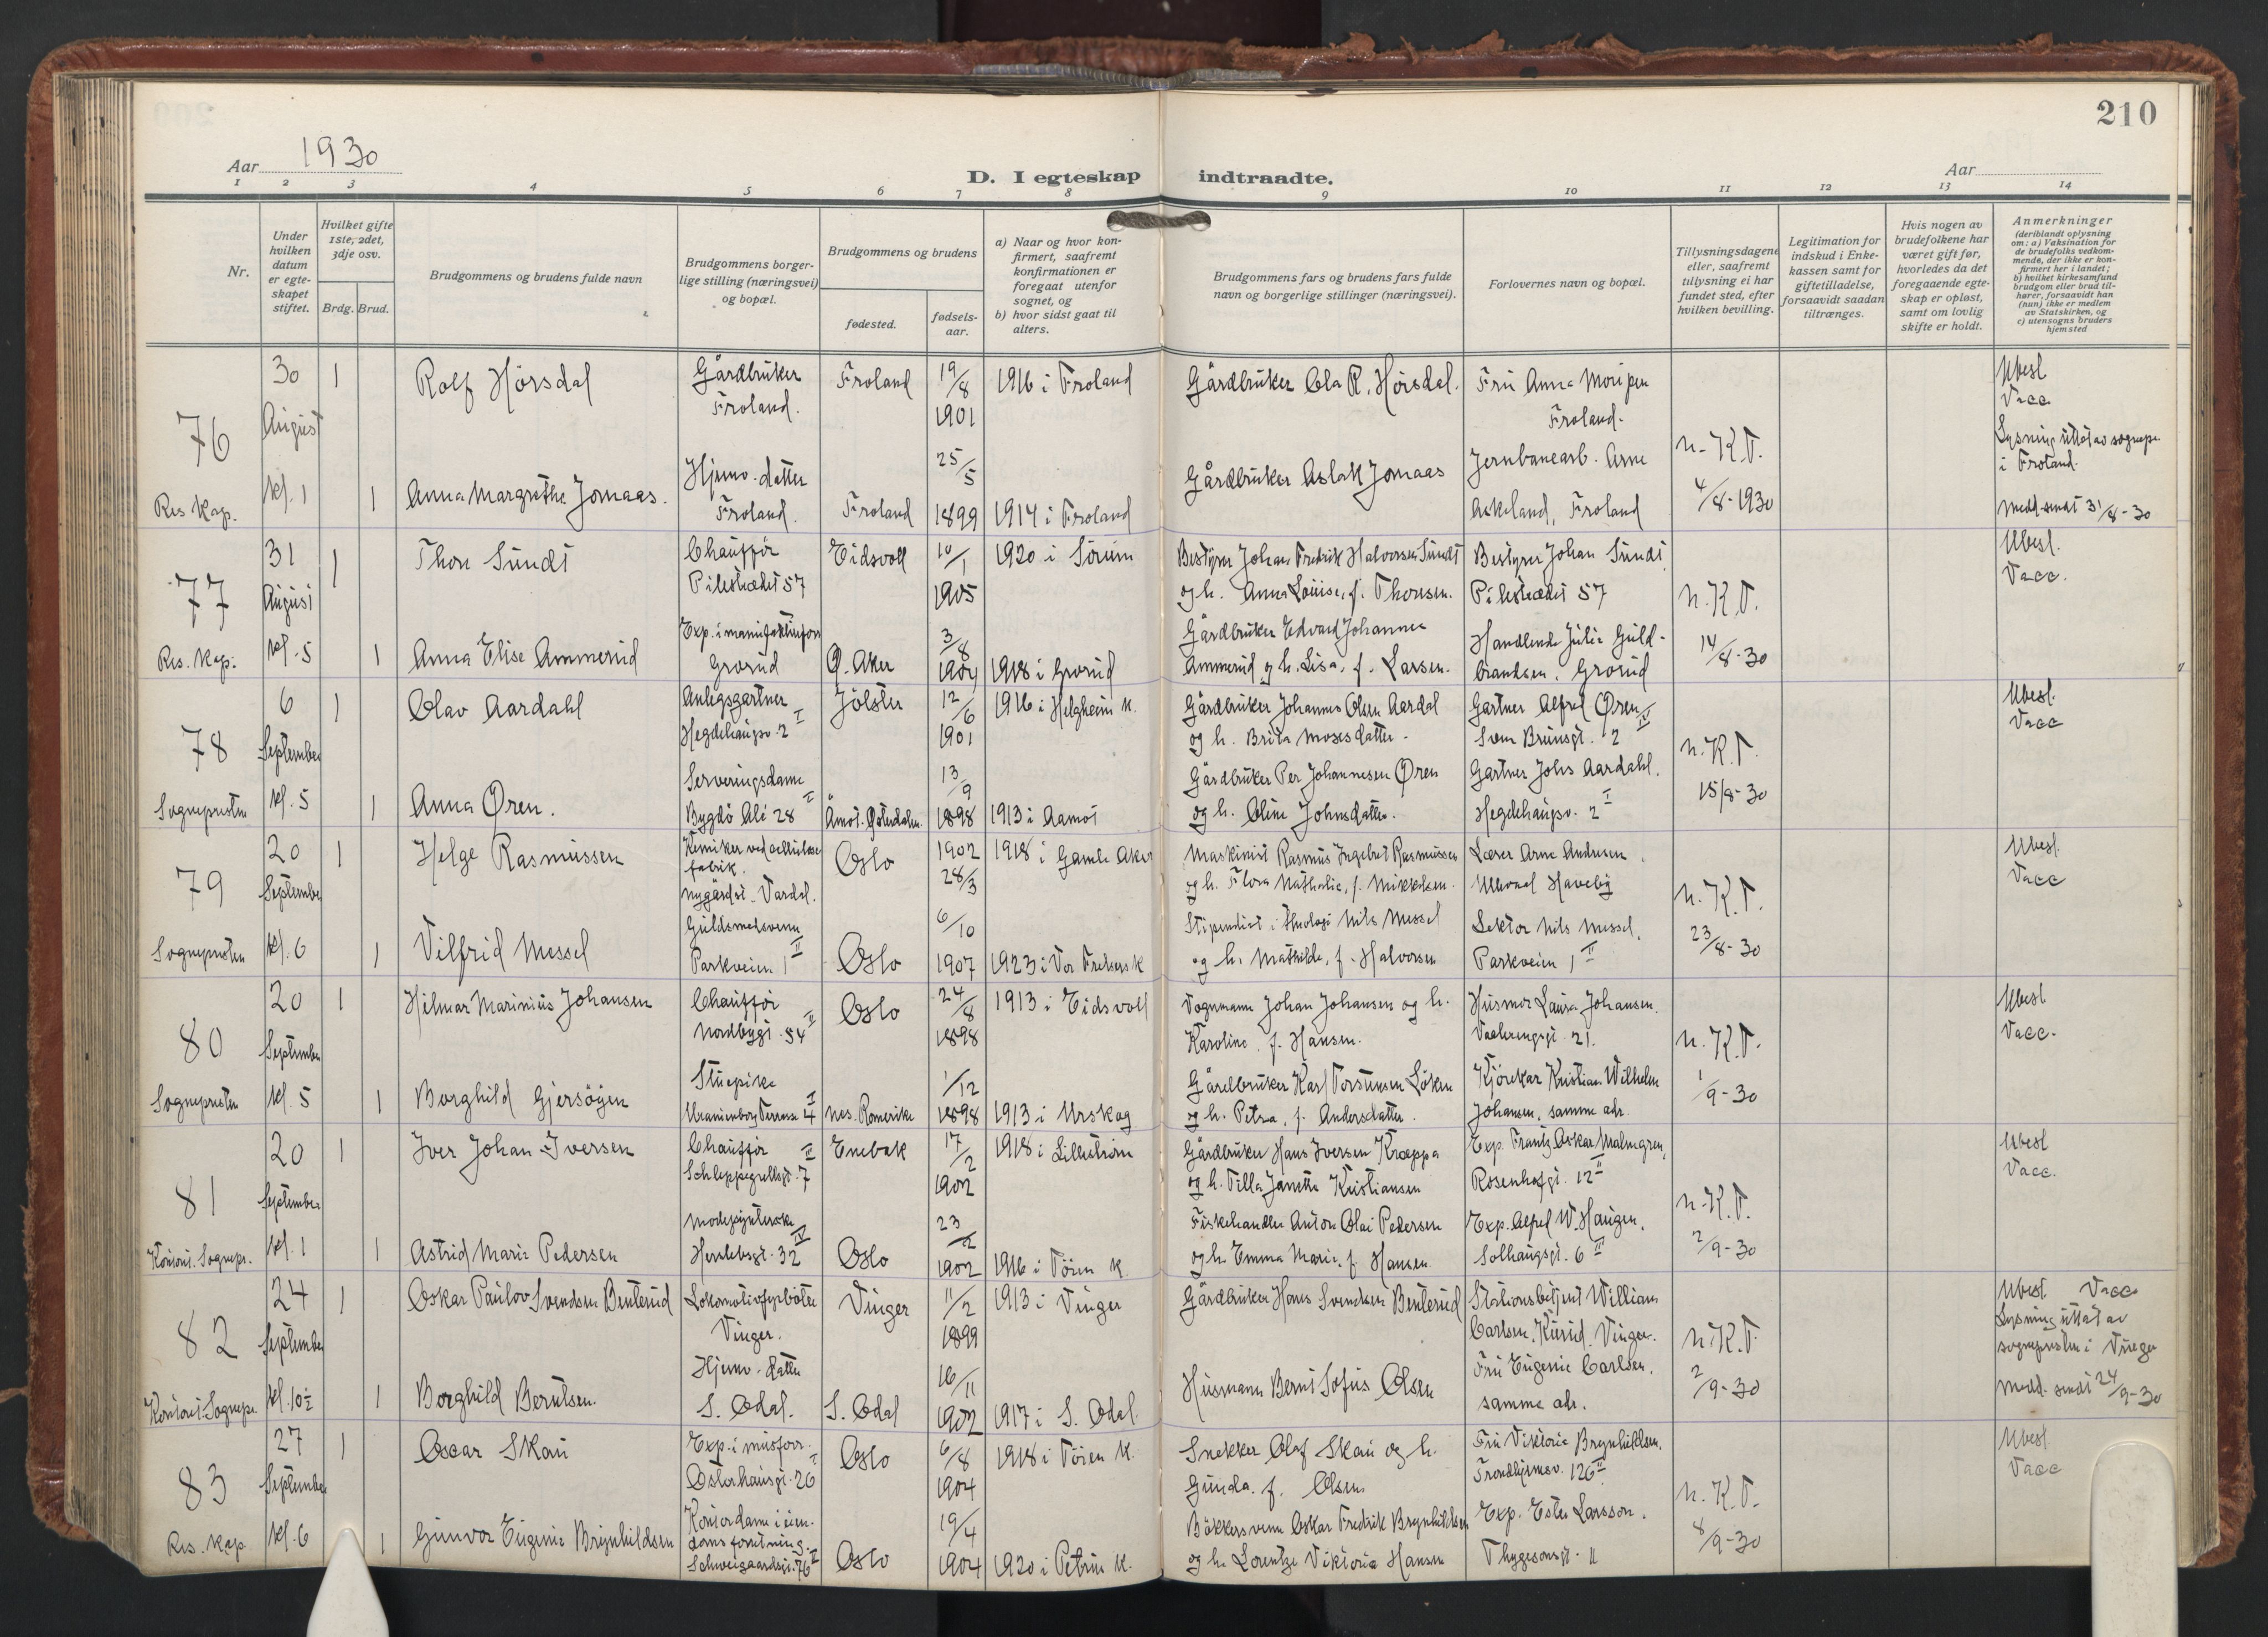 210
Aar 1930
D. I egteskap indtraadte.
Aar
1 2 3 4 5 6 7 8 9 10 11 12 13 14
Nr.
Under hvilken datum er egteskapet stiftet.
Hvilket gifte 1ste, 2det, 3dje osv.
Brdg. Brud.
Brudgommens og brudens fulde navn
Brudgommens borgerlige stilling (næringsvei) og bopæl.
Brudgommens og brudens
fødested.
fødselsaar.
a) Naar og hvor konfirmert, saafremt konfirmationen er foregaat utenfor sognet, og
b) hvor sidst gaat til alters.
Brudgommens fars og brudens fars fulde navn og borgerlige stillinger (næringsvei).
Forlovernes navn og bopæl.
Tillysningsdagene eller, saafremt tillysning ei har fundet sted, efter hvilken bevilling.
Legitimation for indskud i Enkekassen samt for giftetilladelse, forsaavidt saadan tiltrænges.
Hvis nogen av brudefolkene har været gift før, hvorledes da det foregaaende egteskap er opløst, samt om lovlig skifte er holdt.
Anmerkninger (deriblandt oplysning om: a) Vaksination for de brudefolks vedkommende, der ikke er konfirmert her i landet; b) hvilket kirkesamfund brudgom eller brud tilhører, forsaavidt han (hun) ikke er medlem av Statskirken, og c) utensogns bruders hjemsted
76 Res. Kap.
30 August kl. 1
1 Rolf Hörsdal Gårdbruker Froland. Froland 19/8 1901 1916 i Froland Gårdbruker Ola R. Hörsdal. Fru Anna Froland.
1 Anna Margrethe Jomaas. Hjemv. datter Froland. Froland 25/5 1899 1914 i Froland Gårdbruker Aslak Jomaas Jernbanearb. Arne Askeland, Froland
n. K.T. 4/8-1930
Ubesl. Vacc. Lysning uttat av sognepr. i Froland. Medd. sendt 31/8-30
77 Res. Kap.
31 August kl. 5
1 Thore Sundt Chauffør Pilestrædet 57 Eidsvoll 10/1 1905 1920 i Sörum Bestyrer Johan Fredrik Halvorsen Sundt og h. Anna Louise, f. Thoresen. Bestyrer Johan Sundt, Pilestrædet 57
1 Anna Elise Ammerud Exp. i manufakturforr. Grorud Ø. Aker 3/8 1904 1918 i Grorud Gårdbruker Edvard Johannes Ammerud og h. Lisa, f. Larsen. Handlende Julie Guldbrandsen, Grorud
n. K.T. 14/8-30
Ubesl. Vacc.
78 Sognepresten
6 September kl. 5
1 Olav Aardahl Anlegsgartner Hegdehaugsv. 2 I Jölster 12/6 1901 1916 i Helgheim k. Gårdbruker Johannes Olsen Aardal og h. Brita Mosesdatter. Gartner Alfred Øren, Sven Brunsgt. 2 IV
1 Anna Øren. Serveringsdame Bygdö Alé 28 I Åmot. Østerdalen. 13/9 1898 1913 i Aamot Gårdbruker Per Johannesen Øren og h. Oline Johnsdatter. Gartner Johs Aardahl. Hegdehaugsv. 2 I
n. K.T. 15/8-30
Ubesl. Vacc
79 Sognepresten
20 September kl. 6
1 Helge Rasmussen Kemiker ved cellulosefabrik. Nygårdst. Vardal. Oslo 1902 28/3 1918 i Gamle Aker Maskinist Rasmus Ingebret Rasmussen og h. Flora Nathalie, f. Mikkelsen. Læser Arne Andresen, Ullevaal Haveby
1 Vilfrid Messel Guldsmedsvenn Parkveien 1 II Oslo 6/10 1907 1923 i Vor Frelsers k Stipendiat i theologi Nils Messel og h. Mathilde, f. Halvorsen Lektor Nils Messel, Parkveien 1 II
n. K.T. 23/8-30
Ubesl. Vacc
80 Sognepresten
20 September kl. 5
1 Hilmar Marinius Johansen Chauffør Nordbygt. 54 II Oslo 24/8 1898 1913 i Eidsvoll Vognmann Johan Johansen og h. Karoline, f. Hansen. Husmor Laura Johansen. Vaalerengsgt. 21.
1 Borghild Gjersöyen Stuepike Uranienborg Terrasse 4 I Nes. Romerike 1/12 1898 1913 i Urskog Gårdbruker Karl Torstensen Löken og h. Petra, f. Andersdatter. Kjörekar Kristian Wilhelm Johansen, samme adr.
n. K.T. 1/9-30
Ubesl. Vacc.
81 Kontoret. Sognepr.
20 September kl. 1
1 Iver Johan Iversen Chauffør Schleppegrellsgt. 7 III Enebak 17/2 1902 1918 i Lilleström Gårdbruker Hans Iversen Kroeppa og h. Tilla Janette Kristiansen Exp. Frantz Oskar Malmgren, Rosenhofgt. 12 II
1 Astrid Marie Pedersen Modepynterske Herslebsgt. 32 IV Oslo 23/2 1902 1916 i Töien k. Fiskehandler Anton Olai Pedersen og h. Emma Marie, f. Hansen Exp. Alfred W. Haugen, Solhaugsgt. 6 II
n. K.T. 2/9-30
Ubesl Vacc.
82 Kontoret. Sognepr.
24 September kl. 10½
1 Oskar Paulov Svendsen Benterud Lokomotivfyrböter Vinger. Vinger 11/2 1899 1913 i Vinger Gårdbruker Hans Svendsen Benterud Stationsbetjent William Carlsen, Kurud, Vinger.
1 Borghild Berntsen. Hjemv. datter S. Odal. S. Odal 16/11 1902 1917 i S. Odal. Husmann Bernt Sofus Olsen Fru Eugenie Carlsen, samme adr.
n. K.T. 2/9-30
Ubesl. Vacc. Lysning uttat av sognepresten i Vinger Medd. sendt 24/9-30
83 Res. Kap.
27 September kl. 6
1 Oscar Skau Exp. i musforr. Osterhausgt. 26 I Oslo 6/8 1904 1918 i Töien k. Snekker Olaf Skau og h. Gunda, f. Olsen Fru Viktoria Brynhildsen. Trondhjemsv. 126 II
1 Gunvor Eugenie Brynhildsen Kontordame i eiendomsforretning. Schweigaardsgt. 76 II Oslo 19/4 1904 1920 i Petrus k. Bökkersvenn Oskar Fredrik Brynhildsen og h. Lorentze Viktoria Hansen Exp. Ester Larsson. Thygesonsgt. 11
n. K.T. 8/9-30
Ubesl. Vacc